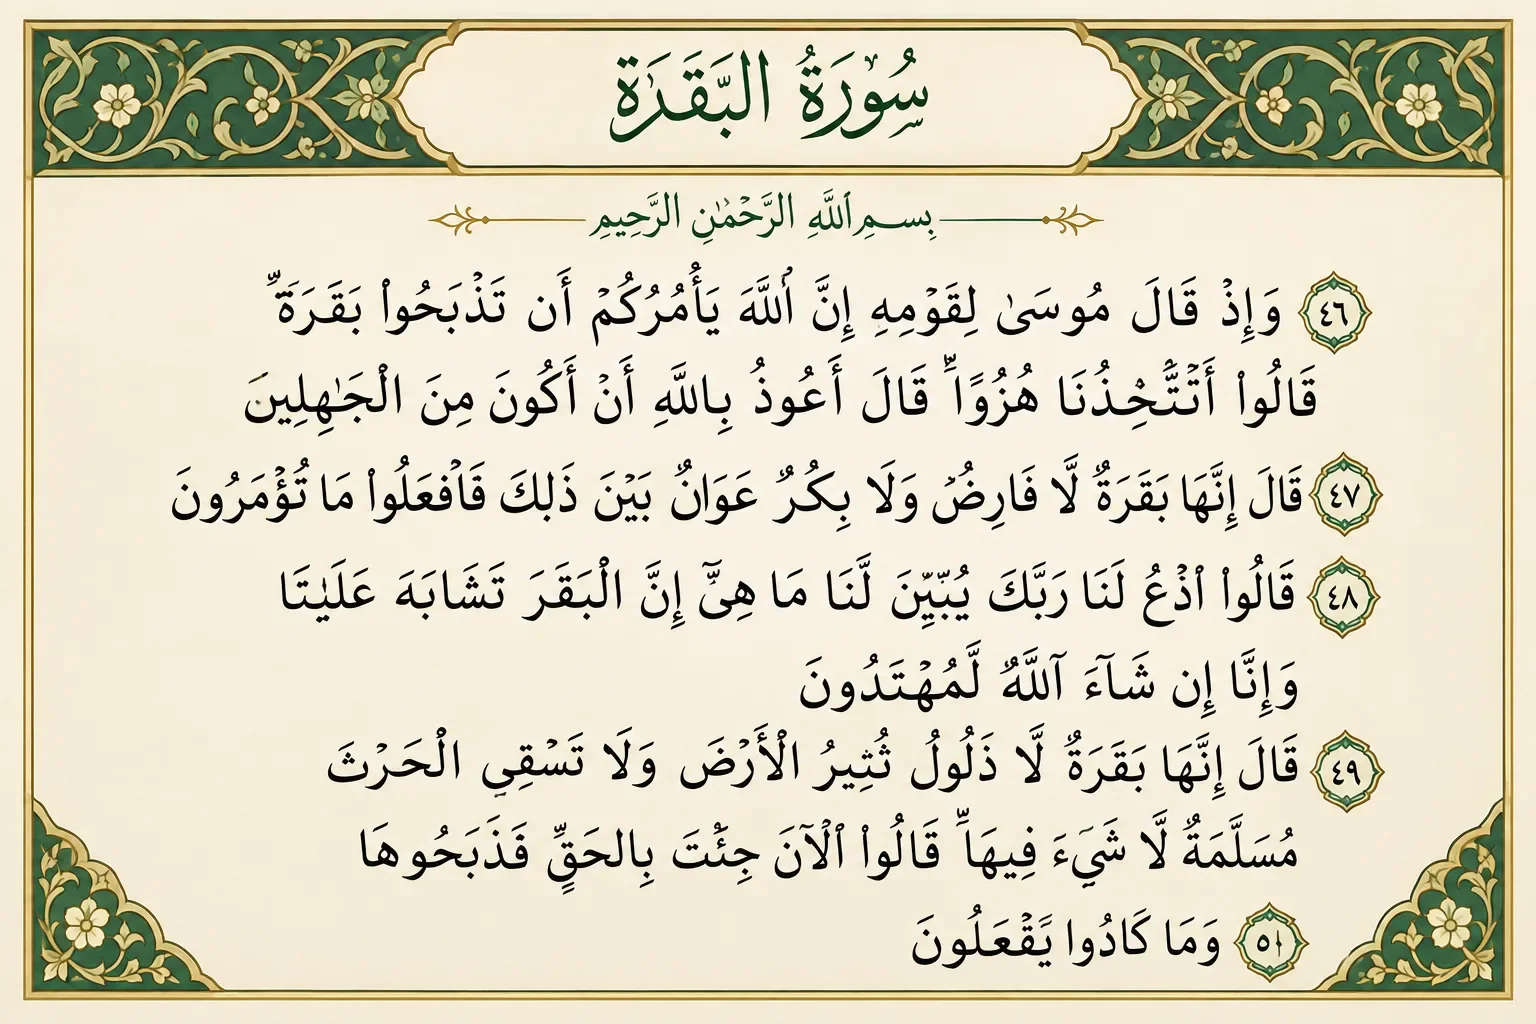 سُورَةُ البَقَرَة
بِسمِ ٱللَّهِ الرَّحْمَٰنِ الرَّحِيمِ
٤٦ وَإِذْ قَالَ مُوسَىٰ لِقَوْمِهِ إِنَّ ٱللَّهَ يَأْمُرُكُمْ أَن تَذْبَحُوا۟ بَقَرَةً
قَالُوا۟ أَتَتَّخِذُنَا هُزُوًا قَالَ أَعُوذُ بِاللَّهِ أَنْ أَكُونَ مِنَ الْجَٰهِلِينَ
٤٧ قَالَ إِنَّهَا بَقَرَةٌ لَّا فَارِضٌ وَلَا بِكْرٌ عَوَانٌ بَيْنَ ذَلِكَ فَٱفْعَلُوا۟ مَا تُؤْمَرُونَ
٤٨ قَالُوا۟ ٱدْعُ لَنَا رَبَّكَ يُبَيِّنَ لَّنَا مَا هِىَّ إِنَّ الْبَقَرَ تَشَابَهَ عَلَيْنَا
وَإِنَّا إِن شَآءَ ٱللَّهُ لَّمُهْتَدُونَ
٤٩ قَالَ إِنَّهَا بَقَرَةٌ لَّا ذَلُولُ ثُثِيرُ الْأَرْضَ وَلَا تَسْقِي الْحَرْثَ
مُسَلَّمَةٌ لَّا شَيْءَ فِيهَا قَالُوا۟ ٱلْآنَ جِئْتَ بِالحَقِّ فَذَبَحُوهَا
وَمَا كَادُوا يَقْعَلُونَ